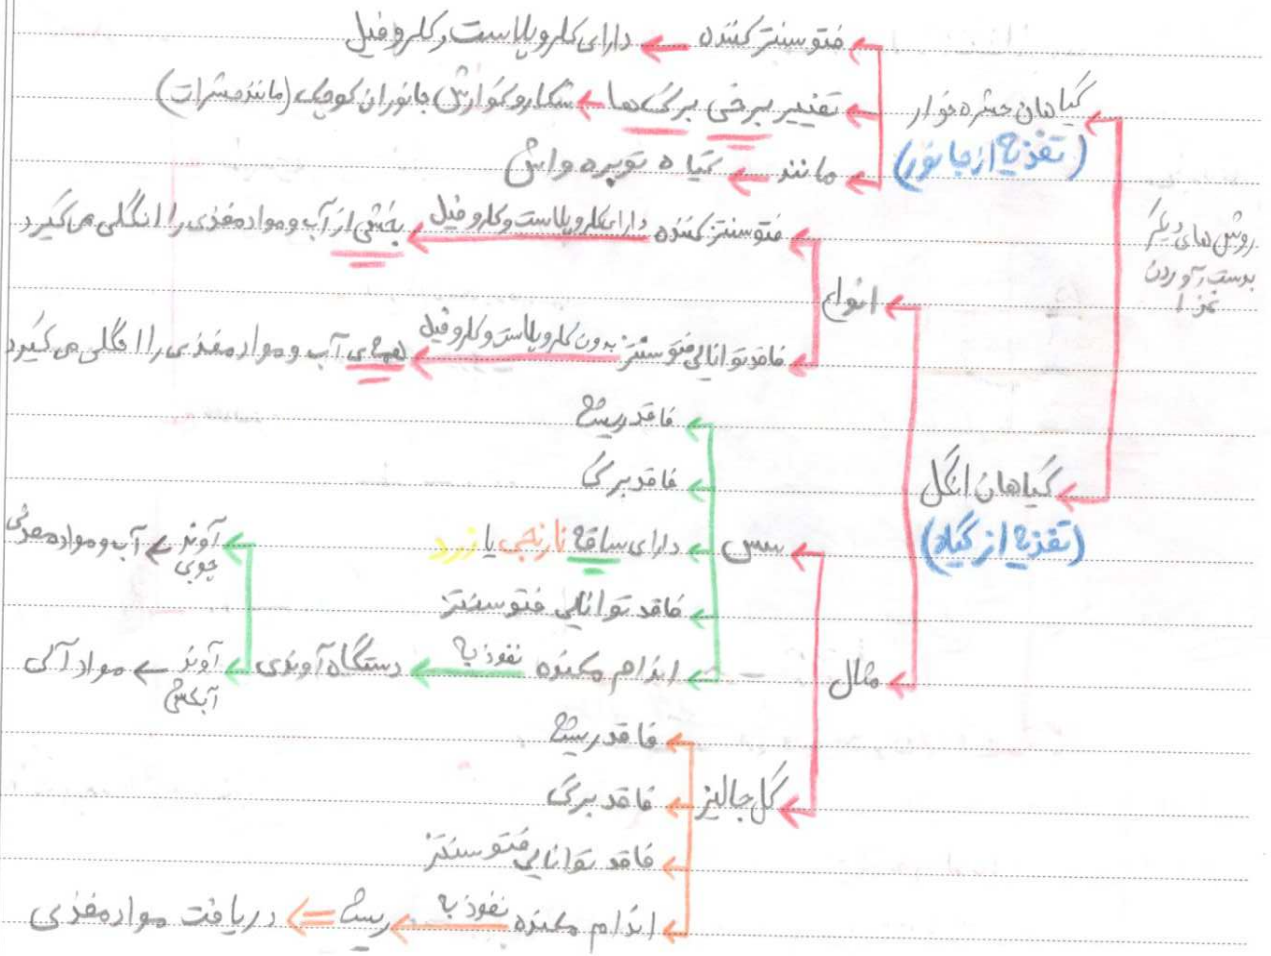 روش های دیگر بدست آوردن غذا
گیاهان حشره خوار (تغذیه از جانور)
فتوسنتز کننده ← دارای کلروپلاست و کلروفیل
تغییر برخی برگ ها ← شکار و گوارش جانوران کوچک (مانند حشرات)
مانند ← گیاه توبره واش
گیاهان انگل (تغذیه از گیاه)
انواع
فتوسنتز کننده دارای کلروپلاست و کلروفیل ← بخشی از آب و مواد مغذی را انگلی می گیرد
فاقد توانایی فتوسنتز بدون کلروپلاست و کلروفیل ← همه ی آب و مواد مغذی را انگلی می گیرد
مثال
سس
فاقد ریشه
فاقد برگ
دارای ساقه نارنجی یا زرد
فاقد توانایی فتوسنتز
اندام مکنده نفوذ به ← دستگاه آوندی
آوند چوبی ← آب و مواد معدنی
آوند آبکش ← مواد آلی
گل جالیز
فاقد ریشه
فاقد برگ
فاقد توانایی فتوسنتز
اندام مکنده نفوذ به ← ریشه ⇐ دریافت مواد مغذی